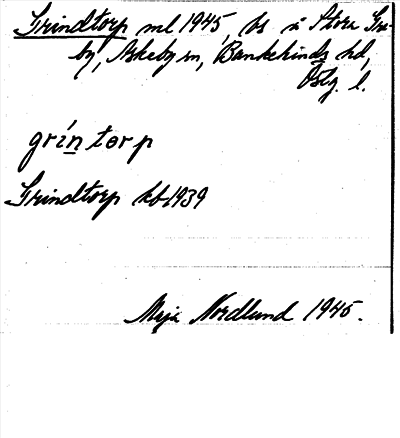 Grindtorp ml 1945, bs å Stora Gre-
by, Askeby sn, Bankekinds hd,
Östg. l.
gríntorp
Grindtorp kb 1939
Maja Nordlund 1945.